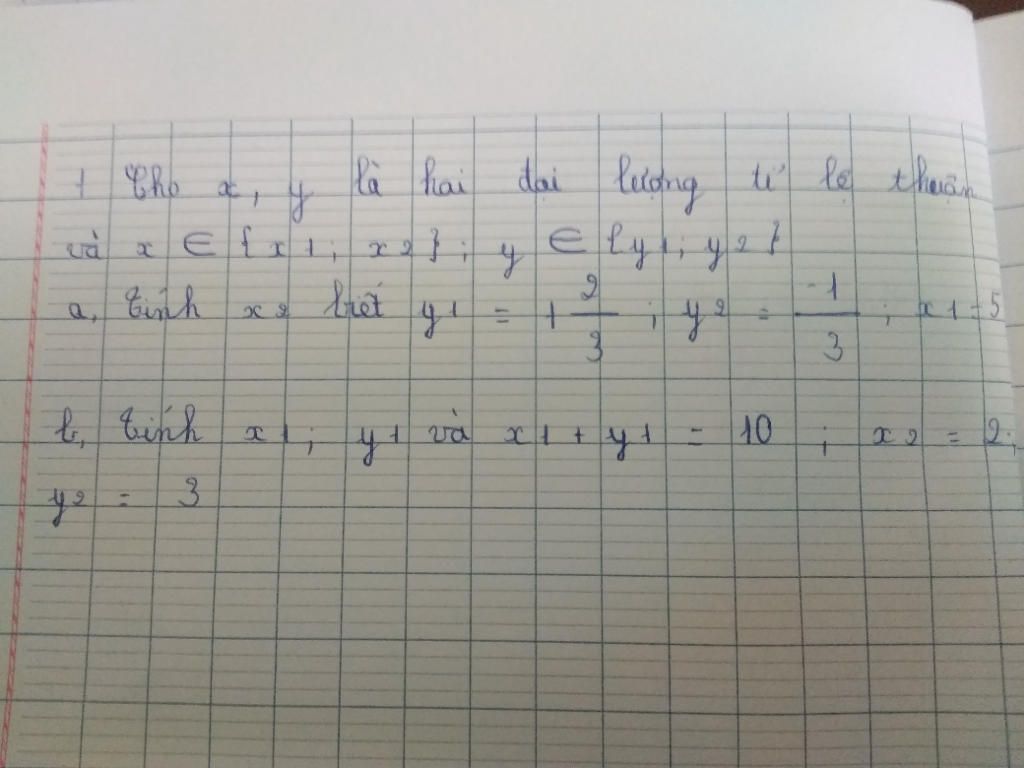 1 Cho x, y là hai đại lượng tỉ lệ thuận
và x ∈ {x1; x2}; y ∈ {y1; y2}
a, Tính x2 biết y1 = 1 2/3 ; y2 = -1/3 ; x1 = 5
b, Tính x1; y1 và x1 + y1 = 10 ; x2 = 2;
y2 = 3